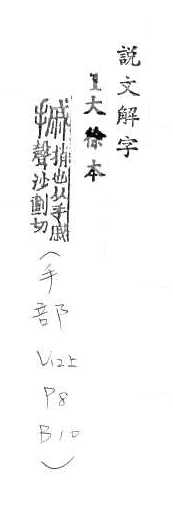 説文解字
1大徐本
摵 捎也从手戚
聲沙劃切
(手部 V12上 P8 B10)